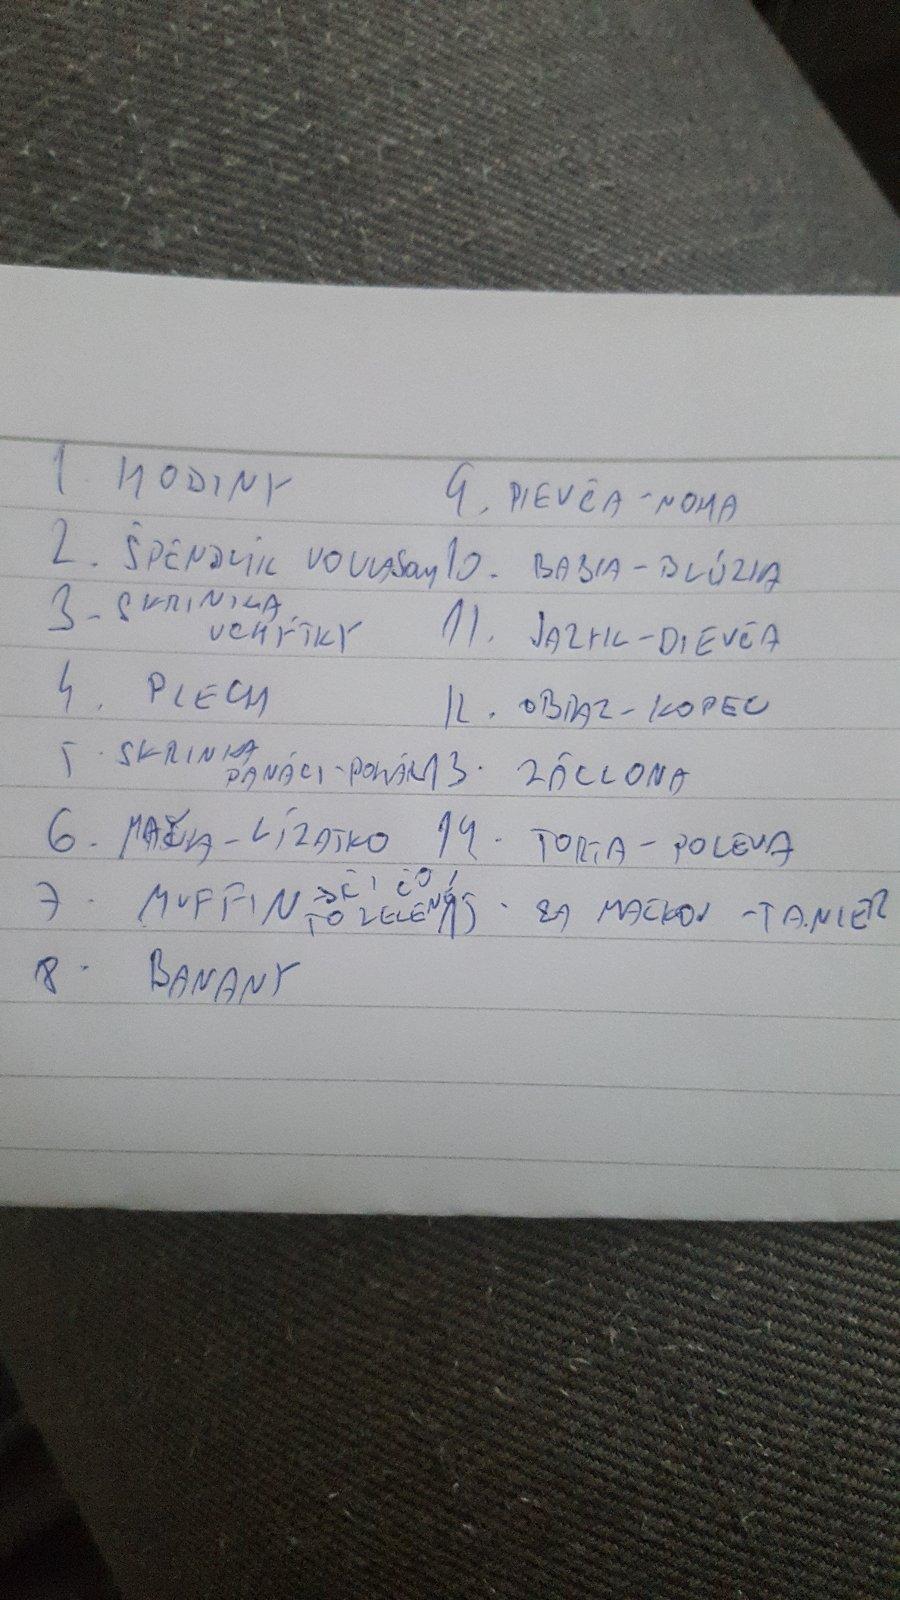 1. HODINY
2. ŠPENDLÍK VO VLASOCH
3. SKRINKA
ÚCHYTKY
4. PLECH
5. SKRINKA
PANÁCI-POHÁR
6. MAČKA-LÍZATKO
7. MUFFIN ČI ČO JE
TO ZELENÉ
8. BANANY
9. DIEVČA-NOHA
10. BABKA-BLÚZKA
11. JAZYK-DIEVČA
12. OBRAZ-KOPEC
13. ZÁCLONA
14. TORTA-POLEVA
15. ZA MACKOM-TANIER